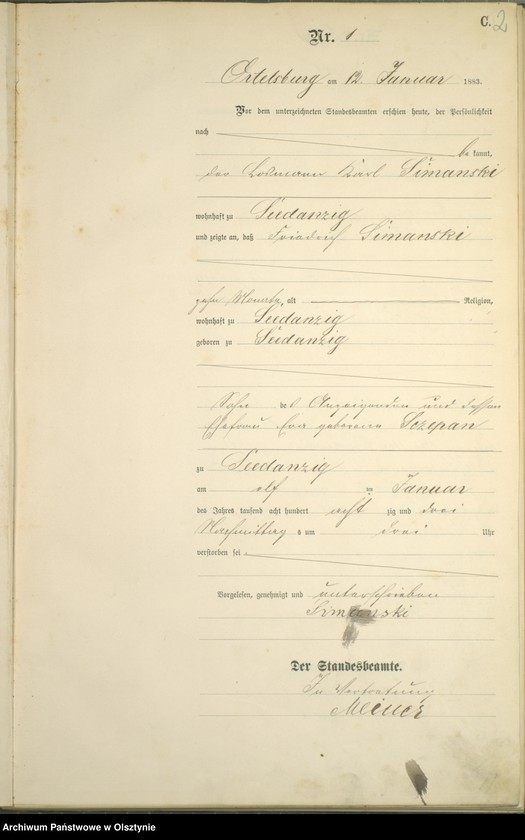 C. 2
Nr. 1
Ortelsburg am 12. Januar 1883.
Vor dem unterzeichneten Standesbeamten erschien heute, der Persönlichkeit
nach
be kannt,
der Losmann Karl Simanski
wohnhaft zu Seedanzig
und zeigte an, daß Friedrich Simanski
zehn Monate, alt Religion,
wohnhaft zu Seedanzig
geboren zu Seedanzig
Sohn des Anzeigenden und dessen
Ehefrau Eva geborene Sczepan
zu Seedanzig
am elf ten Januar
des Jahres tausend acht hundert acht zig und drei
Nachmittag s um drei Uhr
verstorben sei
Vorgelesen, genehmigt und unterschrieben
Simanski
Der Standesbeamte.
In Vertretung
Archiwum Państwowe w Olsztynie